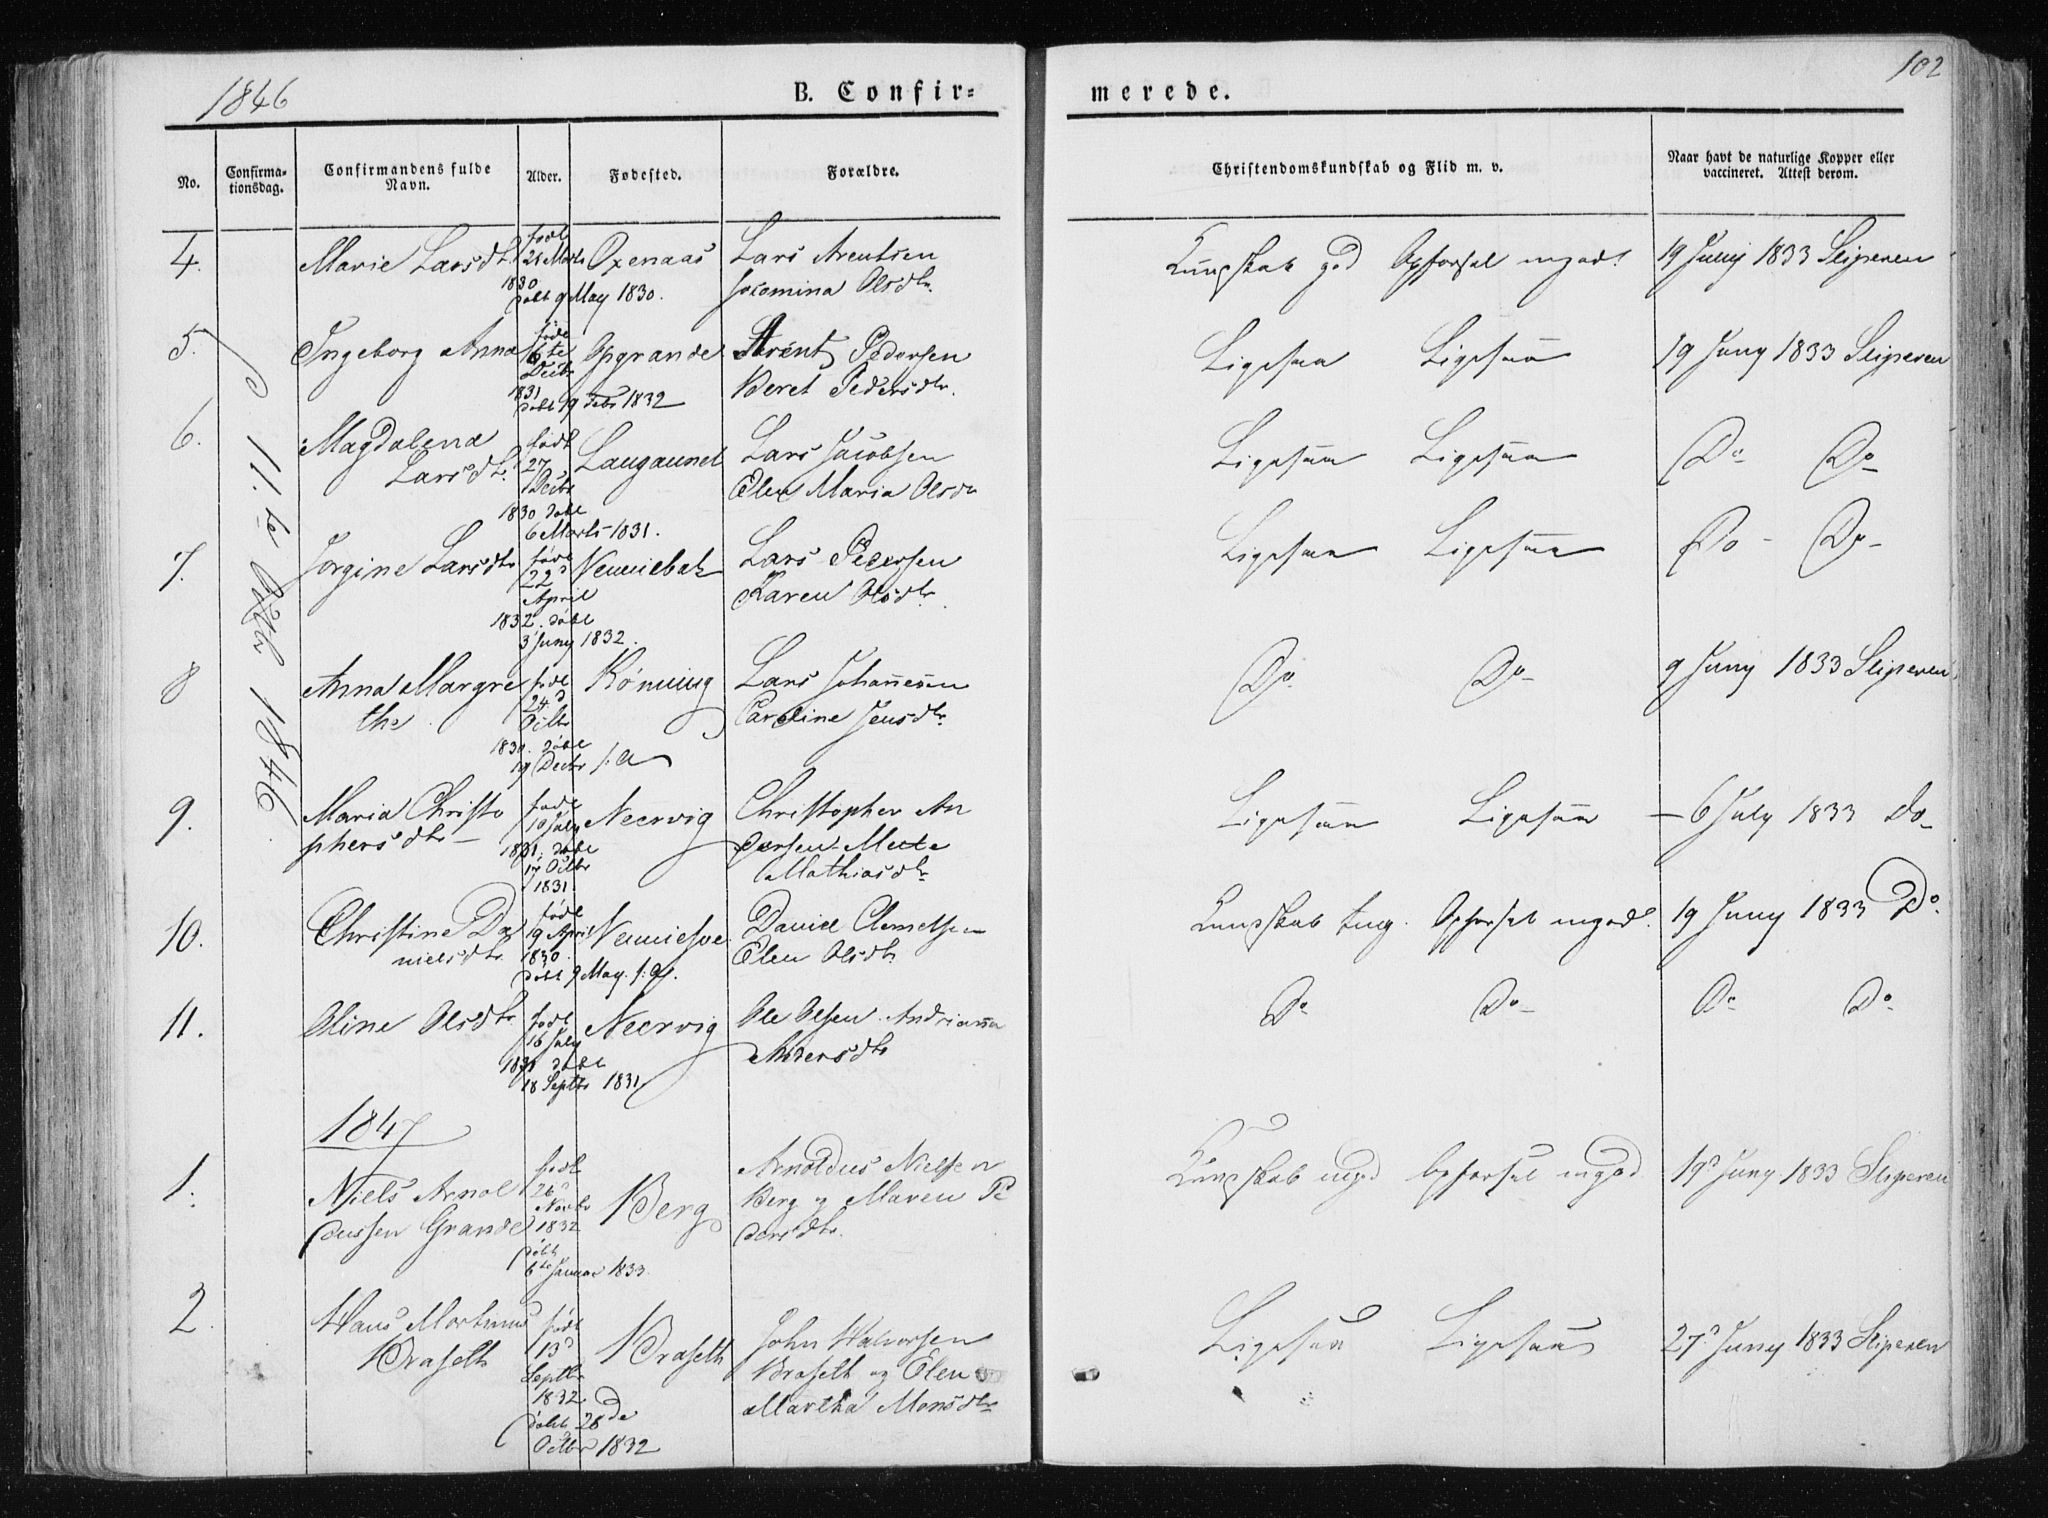 1846 B. Confir= merede. 102
No. Confirma-tionsdag. Confirmandens fulde Navn. Alder. Fødested. Forældre. Christendomskundskab og Flid m. v. Naar havt de naturlige Kopper eller vaccineret. Attest derom.
d 11te Octbr 1846
4. Marie Larsdtr født 28 Marts 1830 døbt 9 May 1830. Oxenaas Lars Arentsen
Jocomina Olsdtr. Kundskab god Opførsel mgod. 19 Juny 1833 Sliperen
5. Ingeborg Anna født 6te Decbr 1831 døbt 19 Febr 1832 Opgrande Arent Pedersen
Beret Pedersdtr. Ligesaa Ligesaa 19 Juny 1833 Sliperen
6. Magdalena
Larsdtr. født 27 Decbr 1830 døbt 6 Marts 1831. Laugaunet Lars Jacobsen
Elen Maria Olsdr Ligesaa Ligesaa Do Do
7. Jorgine Larsdtr født 22d April 1832. døbt 3 Juny 1832. Lars Pedersen
Karen Olsdtr. Ligesaa Ligesaa Do - Do -
8 Anna Margre
the født 24d Octbr 1830. døbt 19 Decbr s: A Rönning Lars Johannesen
Caroline Jensdtr. Do Do - 9 Juny 1833 Sliperen
9. Maria Christo
phersdtr - født 10 July 1831. døbt 17 Octbr 1831 Neervig Christopher An
dersen Mette
Mathiasdtr Ligesaa Ligesaa - 6 July 1833 Do
10. Christine Da
nielsdtr født 19 April 1830. døbt 9 May. s: A. Daniel Clemetsen
Elen Olsdtr. Kundskab tug. Opførsel mgod. 19 Juny 1833 Do.
11. Oline Olsdtr født 16 July 1831 døbt 18 Septbr 1831 Neervig Ole Olsen. Andrianna
Andersdtr Do Do - Do Do
1847
1. Niels Arnol
dussen Grande født 26d Novbr 1832 døbt 6te Januar 1833. Berg Arnoldus Nielsen
Berg og Maren Pe
dersdtr. Kundskab mgod Opførsel mgod 19d Juny 1833 Sliperen
2. Hans Mortinus
Braseth født 13d Septbr 1832 døbt 28de Octbr 1832 Braseth John Halvorsen
Braseth og Elen
Martha Monsdtr Ligesaa Ligesaa 27d Juny 1833 Sliperen